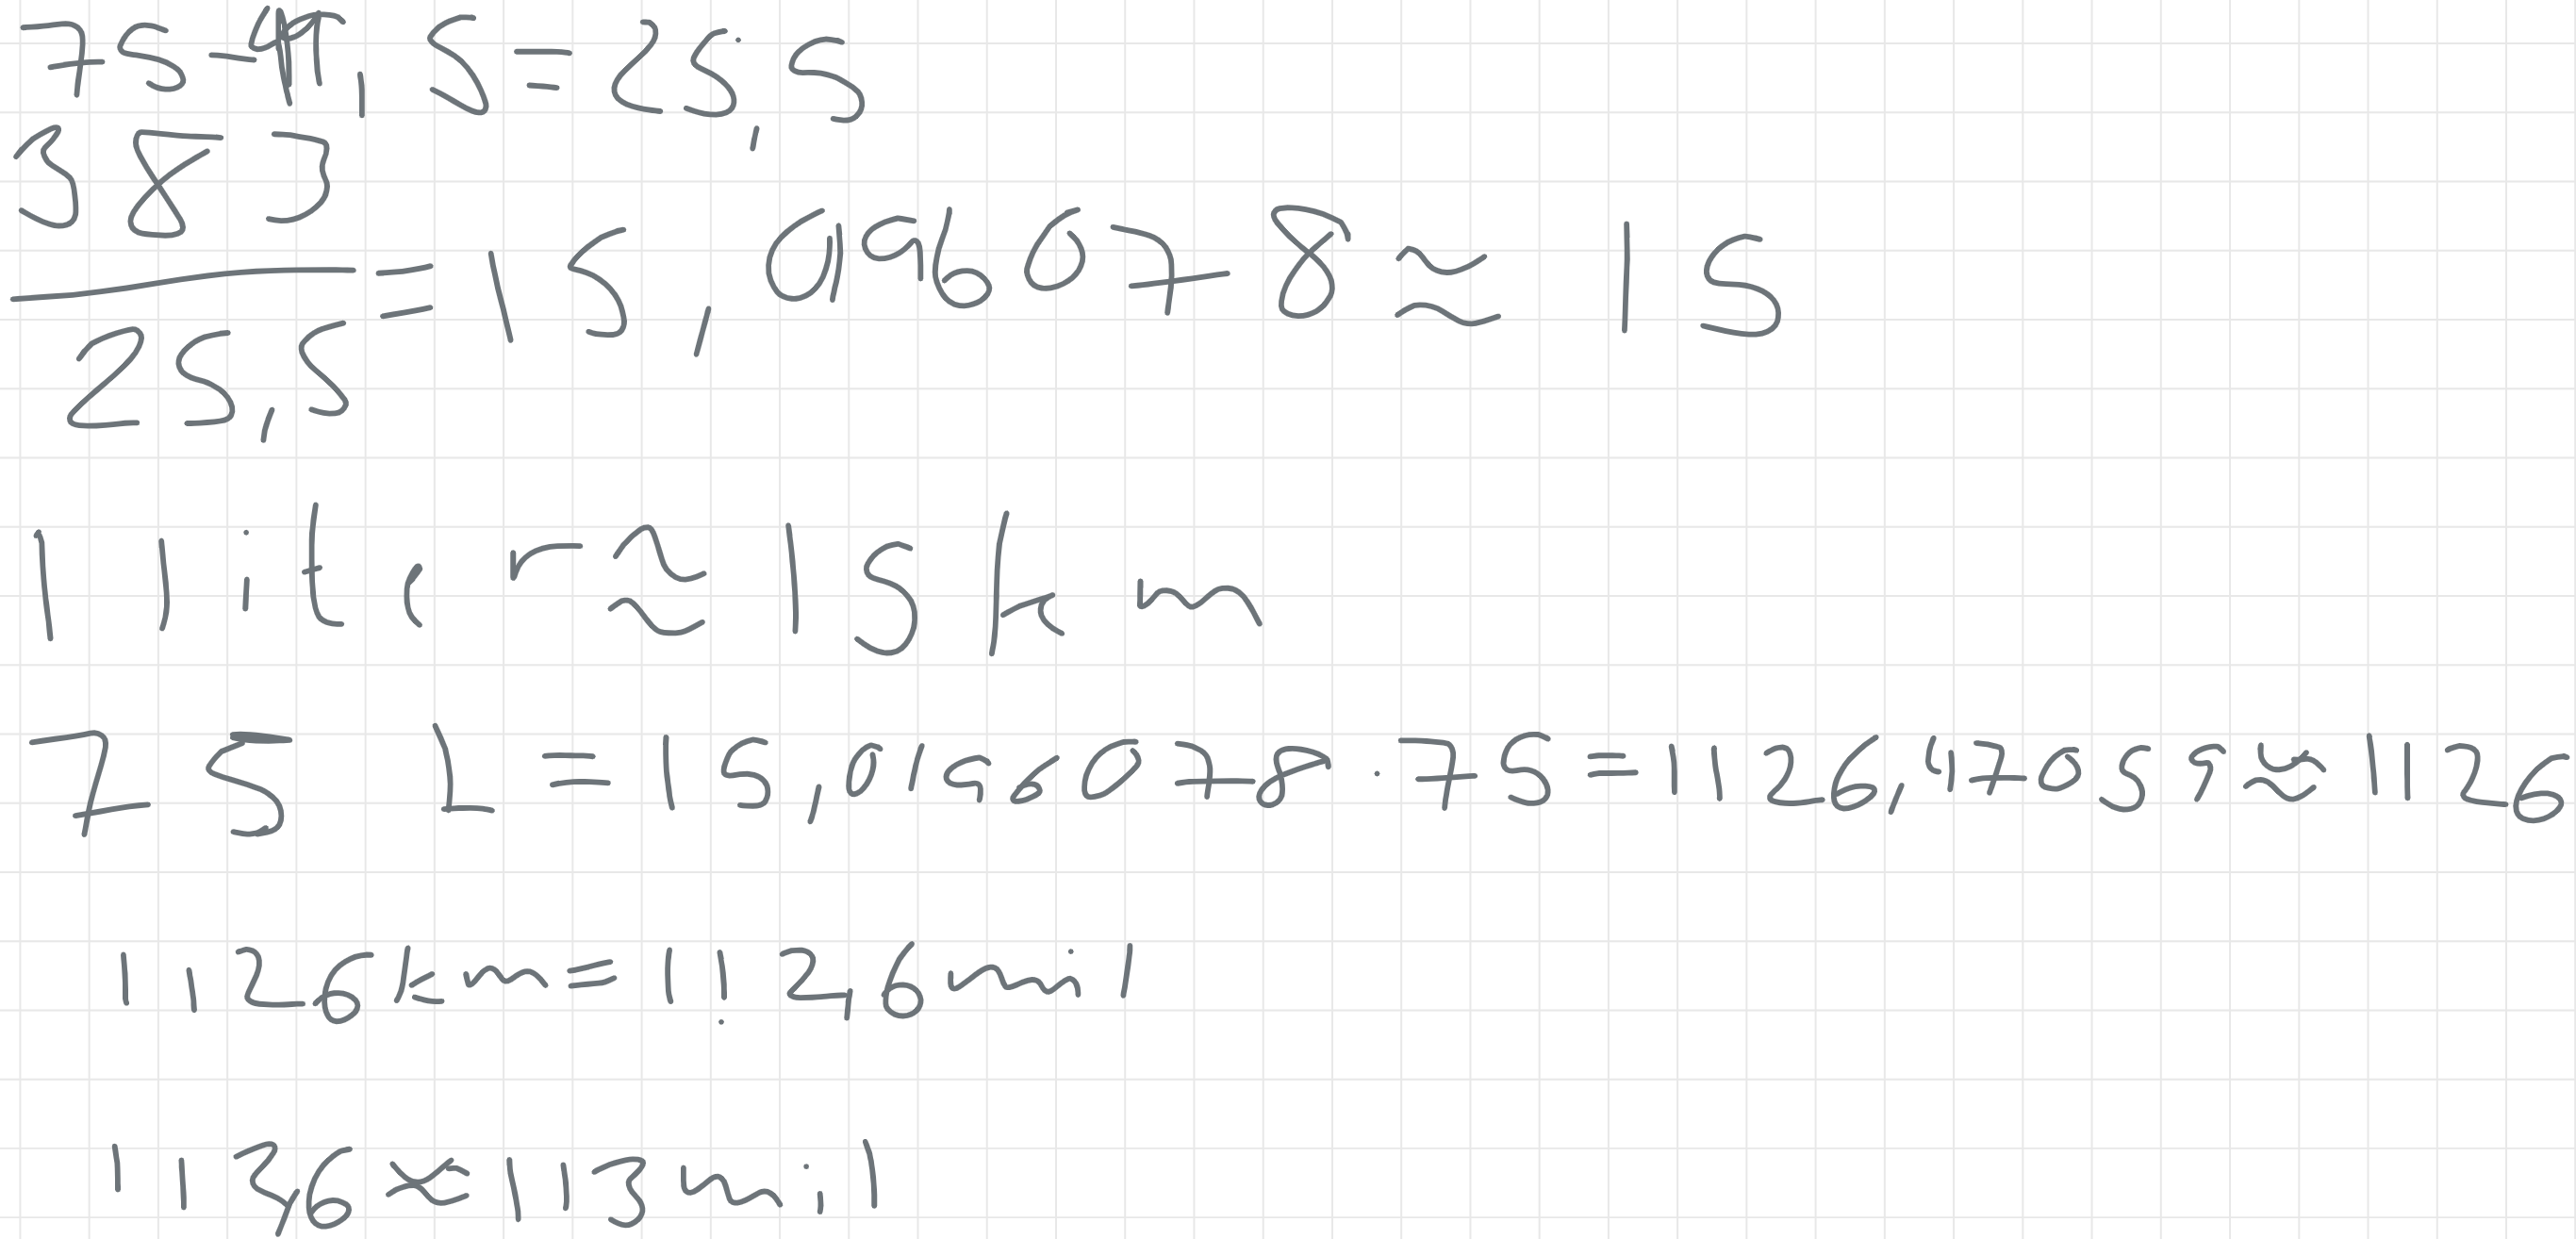 75-49,5=25,5
383
=15,0196078≈15
25,5
1 liter≈15km
75 L=15,0196078·75=1126,47059≈1126
1126km=112,6mil
112,6≈113mil